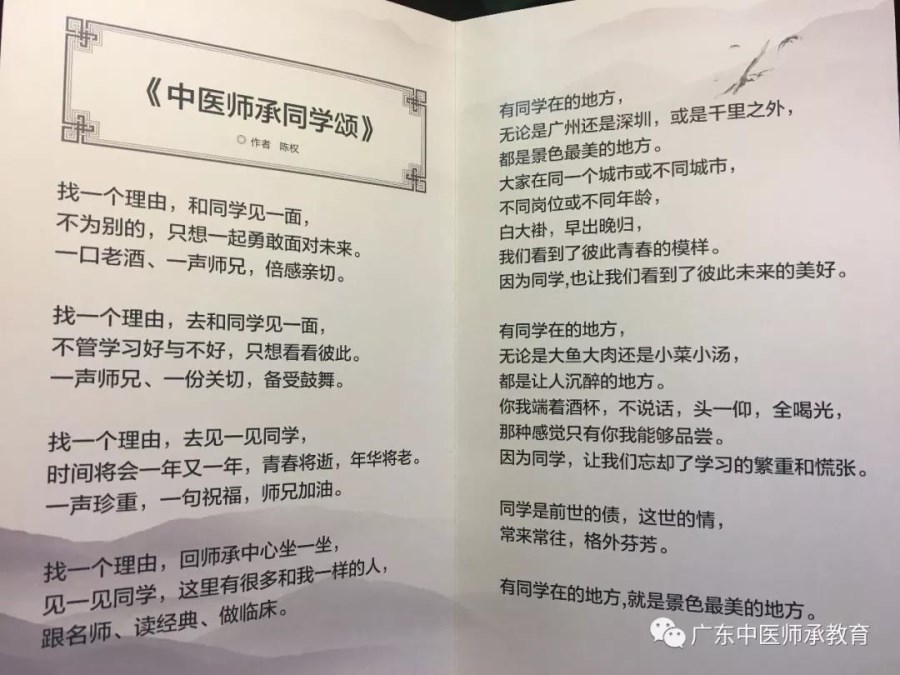 《中医师承同学颂》
◎ 作者 陈权
找一个理由，和同学见一面，
不为别的，只想一起勇敢面对未来。
一口老酒、一声师兄，倍感亲切。
找一个理由，去和同学见一面，
不管学习好与不好，只想看看彼此。
一声师兄、一份关切，备受鼓舞。
找一个理由，去见一见同学，
时间将会一年又一年，青春将逝，年华将老。
一声珍重，一句祝福，师兄加油。
找一个理由，回师承中心坐一坐，
见一见同学，这里有很多和我一样的人，
跟名师、读经典、做临床。
有同学在的地方，
无论是广州还是深圳，或是千里之外，
都是景色最美的地方。
大家在同一个城市或不同城市，
不同岗位或不同年龄，
白大褂，早出晚归，
我们看到了彼此青春的模样。
因为同学,也让我们看到了彼此未来的美好。
有同学在的地方，
无论是大鱼大肉还是小菜小汤，
都是让人沉醉的地方。
你我端着酒杯，不说话，头一仰，全喝光，
那种感觉只有你我能够品尝。
因为同学，让我们忘却了学习的繁重和慌张。
同学是前世的债，这世的情，
常来常往，格外芬芳。
有同学在的地方,就是景色最美的地方。
广东中医师承教育